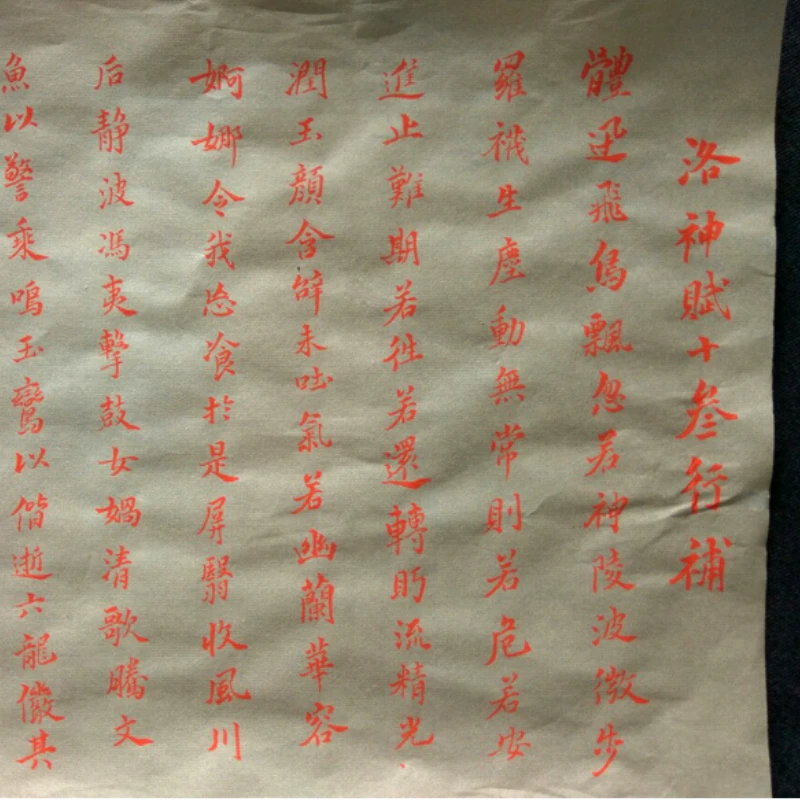 洛神賦十叄行補
體迅飛鳧飄忽若神陵波微步
羅襪生塵動無常則若危若安
進止難期若往若還轉眄流精光
潤玉顏含辭未吐氣若幽蘭華容
婀娜令我忘飡於是屏翳收風川
后静波馮夷擊鼓女媧清歌騰文
魚以警乘鳴玉鸞以偕逝六龍儼其